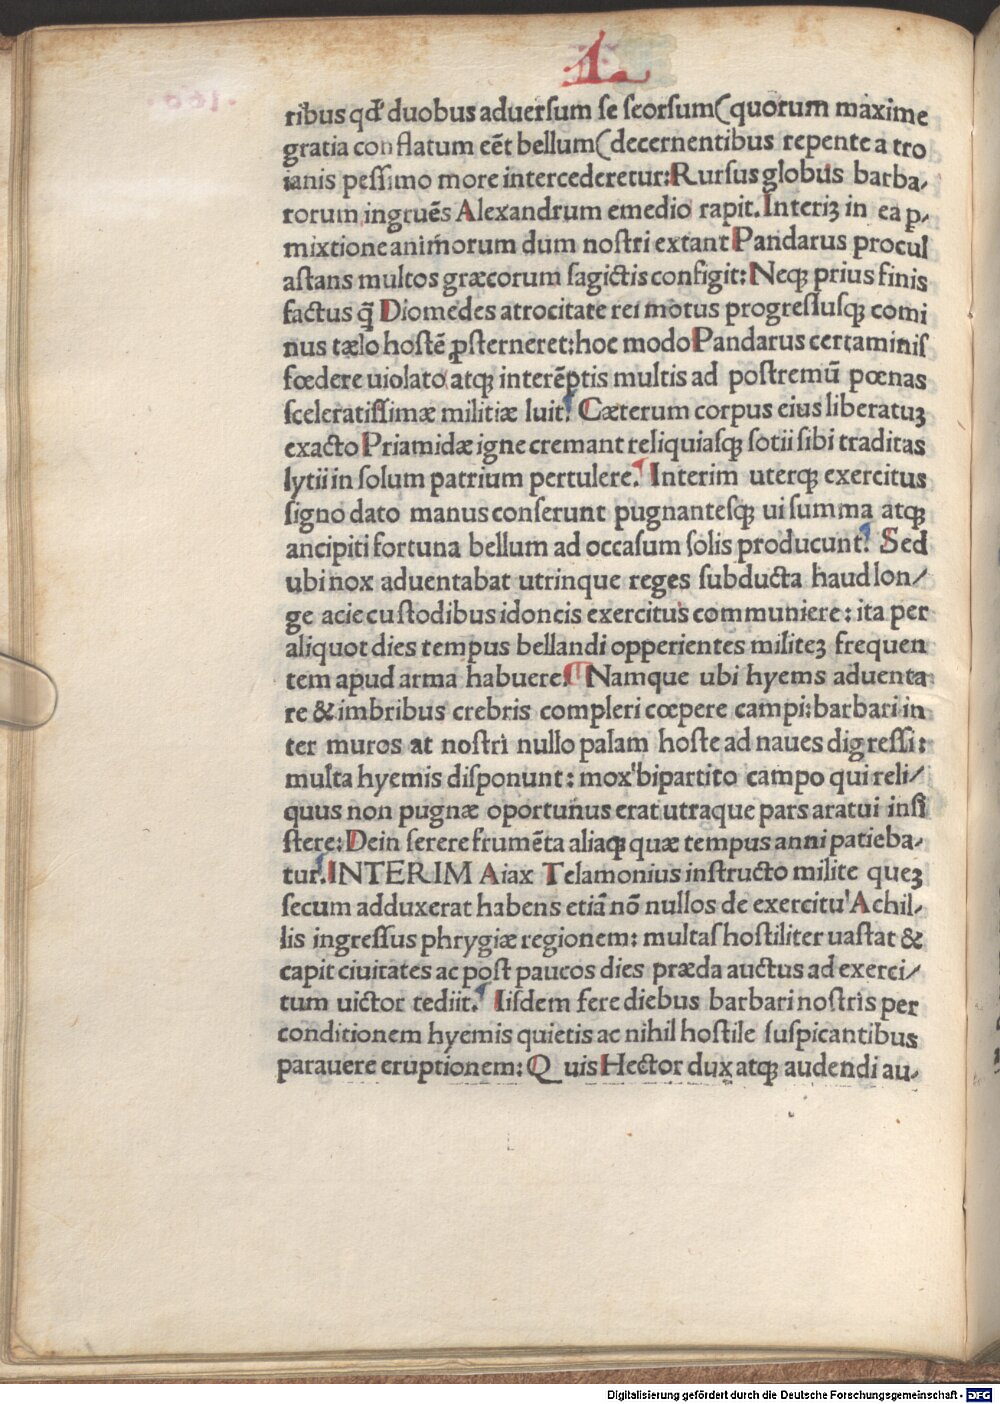 L
ribus qđ duobus aduerſum ſe ſeorſum(quorum maxime
gratia conflatum eēt bellum(decernentibus repente a tro
ianis peſſimo more intercederetur:Rurſus globus barba⸗
rorum ingruēs Alexandrum emedio rapit.Interiꝫ in ea p⸗
mixtione animorum dum noſtri extant Pandarus procul
aſtans multos græcorum ſagictis configit:Neqꝫ prius finis
factus q̄ Diomedes atrocitate rei motus progreſſuſqꝫ comi
nus tælo hoſtē ꝓſterneret:hoc modo Pandarus certaminiſ
fœdere uiolato atqꝫ interēptis multis ad poſtremū pœnas
ſceleratiſſimæ militiæ luit. Cæterum corpus eius liberatuꝫ
exacto Priamidæ igne cremant reliquiaſqꝫ ſotii ſibi traditas
lytii in ſolum patrium pertulere. Interim uterqꝫ exercitus
ſigno dato manus conſerunt pugnanteſqꝫ ui ſumma atqꝫ
ancipiti fortuna bellum ad occaſum ſolis producunt. Sed
ubi nox aduentabat utrinque reges ſubducta haud lon⸗
ge acie cuſtodibus idoneis exercitus communiere: ita per
aliquot dies tempus bellandi opperientes militeꝫ frequen
tem apud arma habuere. Namque ubi hyems aduenta
re & imbribus crebris compleri cœpere campi:barbari in
ter muros at noſtri nullo palam hoſte ad naues digreſſi:
multa hyemis diſponunt: mox bipartito campo qui reli⸗
quus non pugnæ oportunus erat utraque pars aratui inſi
ſtere:Dein ſerere frumēta aliaqꝫ quæ tempus anni patieba⸗
tur.INTERIM Aiax Telamonius inſtructo milite queꝫ
ſecum adduxerat habens etiā nō nullos de exercitu Achil⸗
lis ingreſſus phrygiæ regionem: multaſ hoſtiliter uaſtat &
capit ciuitates ac poſt paucos dies præda auctus ad exerci⸗
tum uictor rediit. Iiſdem fere diebus barbari noſtris per
conditionem hyemis quietis ac nihil hoſtile ſuſpicantibus
parauere eruptionem: Quis Hector dux atqꝫ audendi au⸗
Digitalisierung gefördert durch die Deutsche Forschungsgemeinschaft - DFG